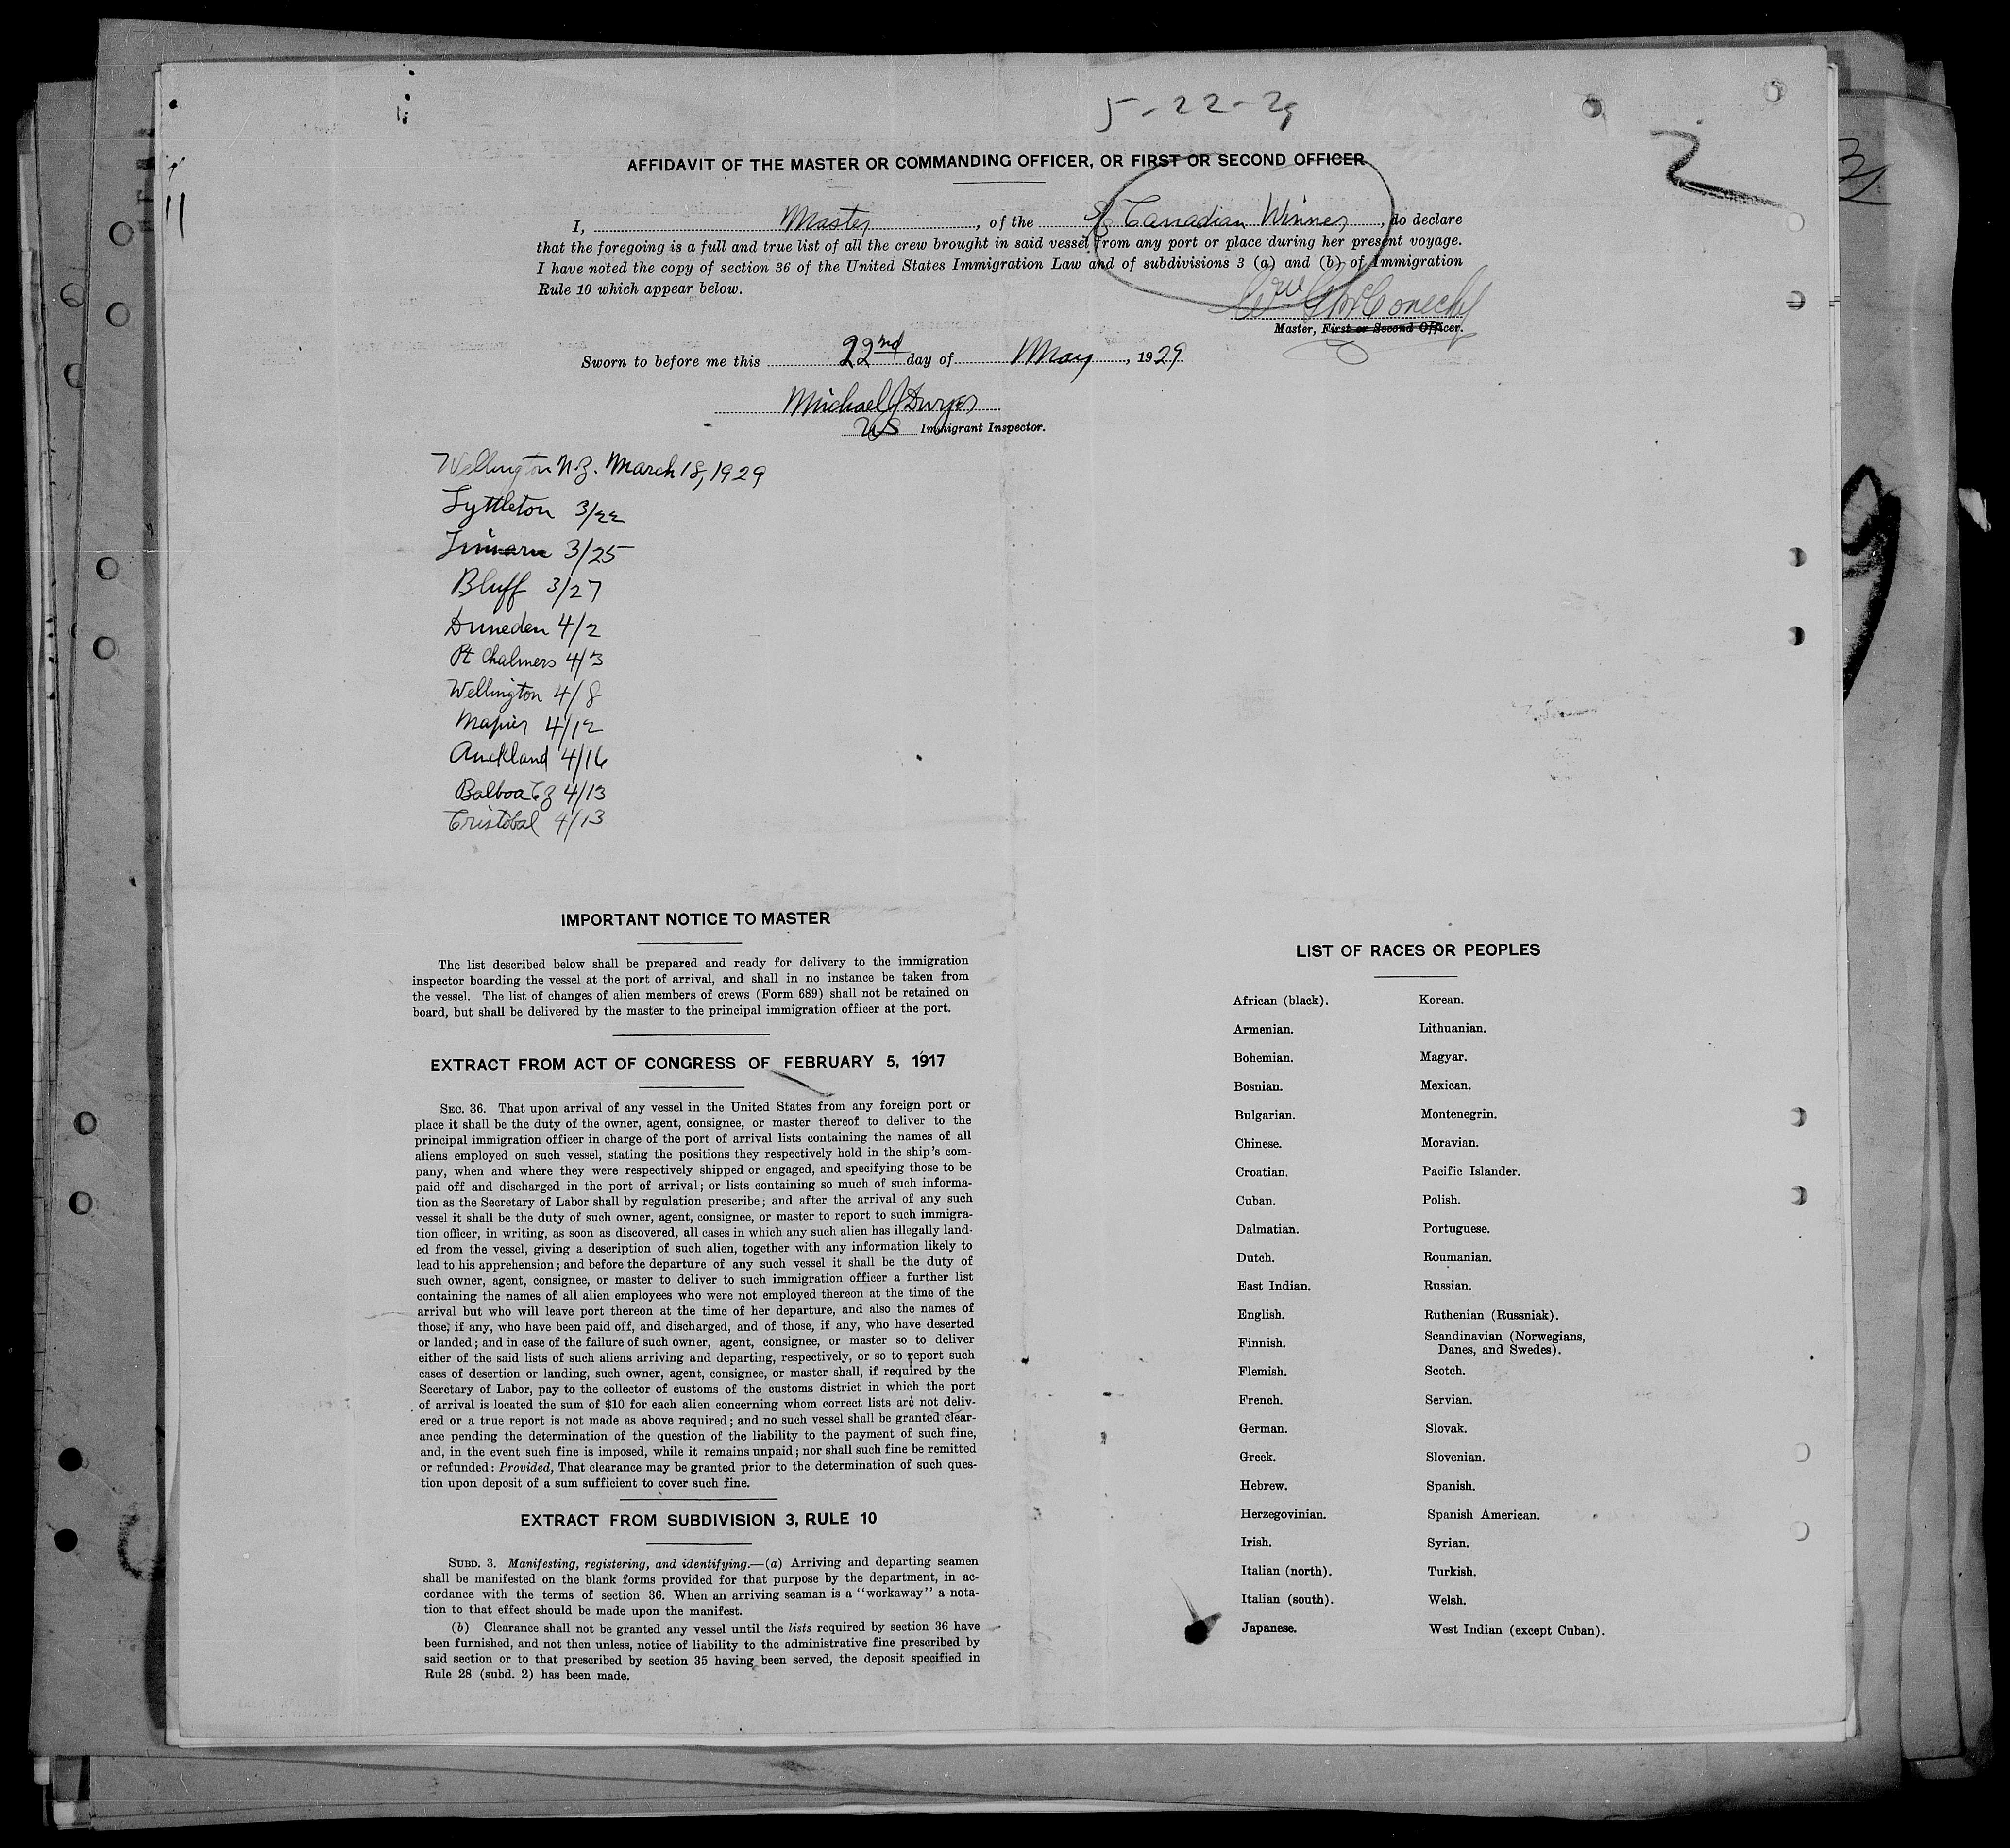 5-22-29
2
AFFIDAVIT OF THE MASTER OR COMMANDING OFFICER, OR FIRST OR SECOND OFFICER
I, Master, of the SS Canadian Winner, do declare
that the foregoing is a full and true list of all the crew brought in said vessel from any port or place during her present voyage.
I have noted the copy of section 36 of the United States Immigration Law and of subdivisions 3 (a) and (b) of Immigration
Rule 10 which appear below.
Master, First or Second Officer.
Sworn to before me this 22nd day of May, 1929.
Michael J Dwyer
US Immigrant Inspector.
11
Wellington N.Z. March 18, 1929
Lyttleton 3/22
3/25
Bluff 3/27
Duneden 4/2
Pt Chalmers 4/3
Wellington 4/8
Napier 4/12
Auckland 4/16
Balboa CZ 4/13
Cristobal 4/13
IMPORTANT NOTICE TO MASTER
The list described below shall be prepared and ready for delivery to the immigration
inspector boarding the vessel at the port of arrival, and shall in no instance be taken from
the vessel. The list of changes of alien members of crews (Form 689) shall not be retained on
board, but shall be delivered by the master to the principal immigration officer at the port.
EXTRACT FROM ACT OF CONGRESS OF FEBRUARY 5, 1917
SEC. 36. That upon arrival of any vessel in the United States from any foreign port or
place it shall be the duty of the owner, agent, consignee, or master thereof to deliver to the
principal immigration officer in charge of the port of arrival lists containing the names of all
aliens employed on such vessel, stating the positions they respectively hold in the ship's com-
pany, when and where they were respectively shipped or engaged, and specifying those to be
paid off and discharged in the port of arrival; or lists containing so much of such informa-
tion as the Secretary of Labor shall by regulation prescribe; and after the arrival of any such
vessel it shall be the duty of such owner, agent, consignee, or master to report to such immigra-
tion officer, in writing, as soon as discovered, all cases in which any such alien has illegally land-
ed from the vessel, giving a description of such alien, together with any information likely to
lead to his apprehension; and before the departure of any such vessel it shall be the duty of
such owner, agent, consignee, or master to deliver to such immigration officer a further list
containing the names of all alien employees who were not employed thereon at the time of the
arrival but who will leave port thereon at the time of her departure, and also the names of
those, if any, who have been paid off, and discharged, and of those, if any, who have deserted
or landed; and in case of the failure of such owner, agent, consignee, or master so to deliver
either of the said lists of such aliens arriving and departing, respectively, or so to report such
cases of desertion or landing, such owner, agent, consignee, or master shall, if required by the
Secretary of Labor, pay to the collector of customs of the customs district in which the port
of arrival is located the sum of $10 for each alien concerning whom correct lists are not deliv-
ered or a true report is not made as above required; and no such vessel shall be granted clear-
ance pending the determination of the question of the liability to the payment of such fine,
and, in the event such fine is imposed, while it remains unpaid; nor shall such fine be remitted
or refunded: Provided, That clearance may be granted prior to the determination of such ques-
tion upon deposit of a sum sufficient to cover such fine.
EXTRACT FROM SUBDIVISION 3, RULE 10
SUBD. 3. Manifesting, registering, and identifying.—(a) Arriving and departing seamen
shall be manifested on the blank forms provided for that purpose by the department, in ac-
cordance with the terms of section 36. When an arriving seaman is a "workaway" a nota-
tion to that effect should be made upon the manifest.
(b) Clearance shall not be granted any vessel until the lists required by section 36 have
been furnished, and not then unless, notice of liability to the administrative fine prescribed by
said section or to that prescribed by section 35 having been served, the deposit specified in
Rule 28 (subd. 2) has been made.
LIST OF RACES OR PEOPLES
African (black). Korean.
Armenian. Lithuanian.
Bohemian. Magyar.
Bosnian. Mexican.
Bulgarian. Montenegrin.
Chinese. Moravian.
Croatian. Pacific Islander.
Cuban. Polish.
Dalmatian. Portuguese.
Dutch. Roumanian.
East Indian. Russian.
English. Ruthenian (Russniak).
Finnish. Scandinavian (Norwegians,
Danes, and Swedes).
Flemish. Scotch.
French. Servian.
German. Slovak.
Greek. Slovenian.
Hebrew. Spanish.
Herzegovinian. Spanish American.
Irish. Syrian.
Italian (north). Turkish.
Italian (south). Welsh.
Japanese. West Indian (except Cuban).